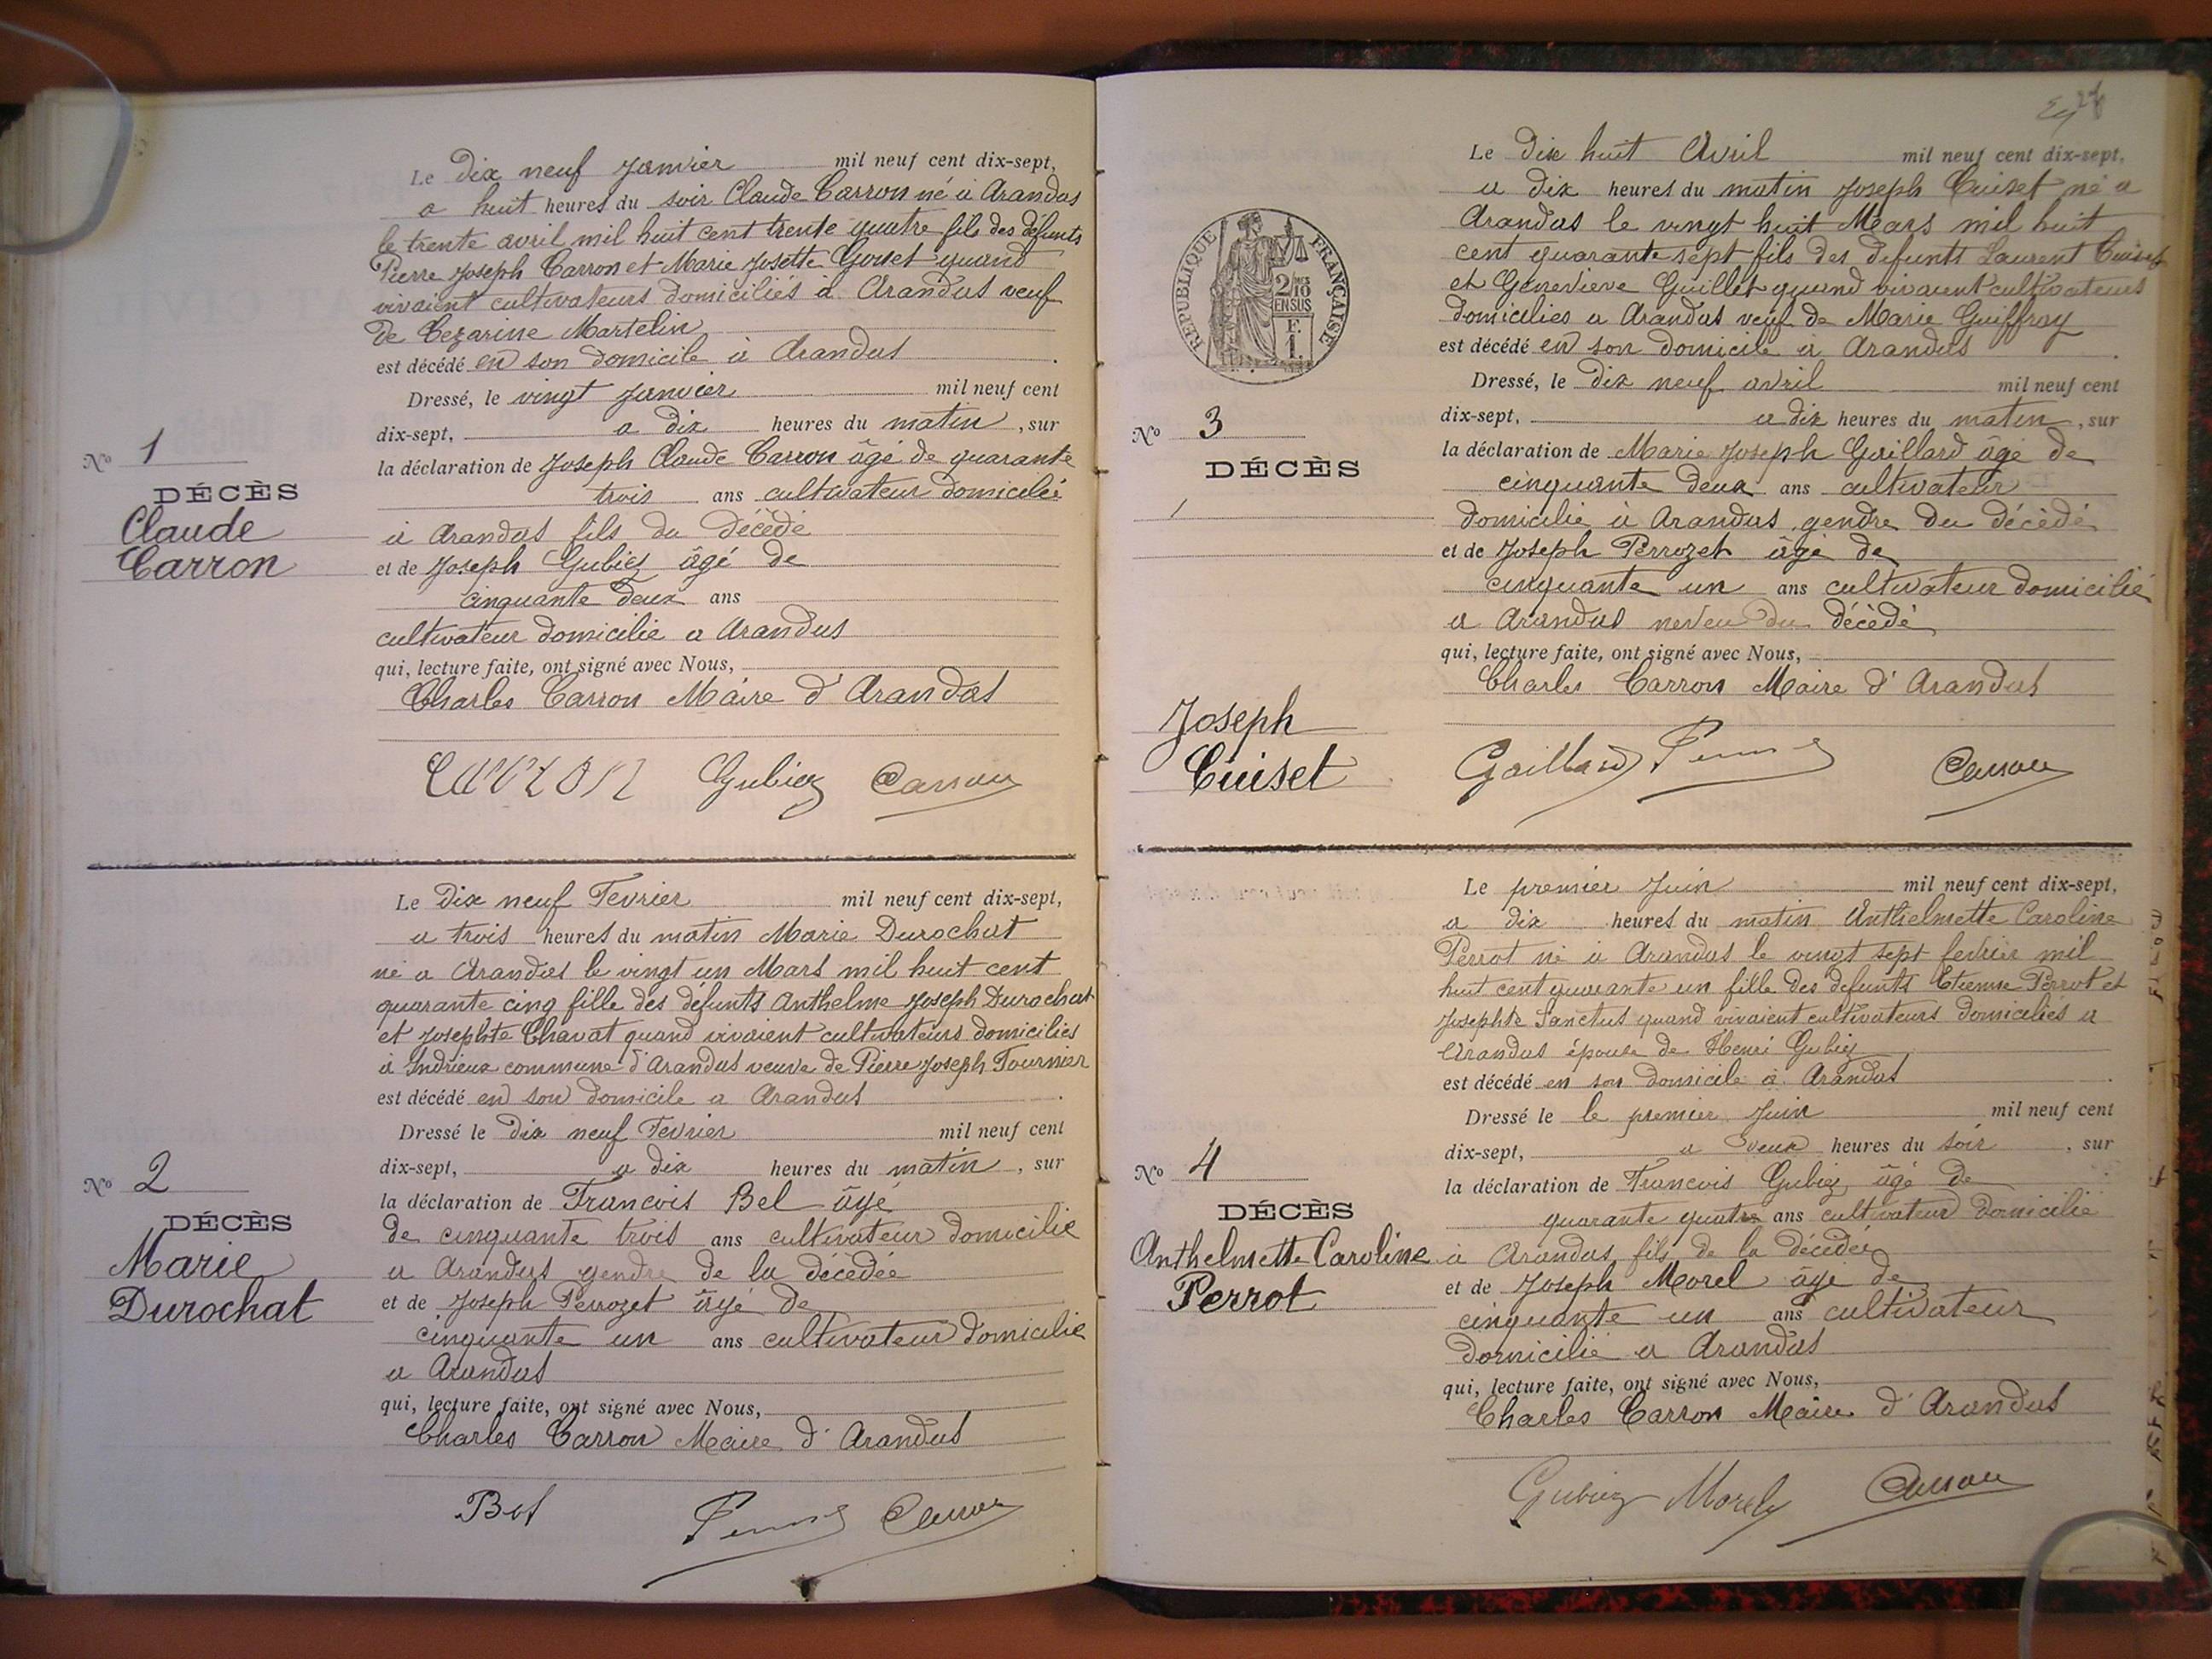 Le Dix neuf Janvier mil neuf cent dix-sept,
a huit heures du soir Claude Carron né à Arandas
le trente avril mil huit cent trente quatre fils des défunts
Pierre Joseph Carron et Marie Josette Gouet quand
vivaient cultivateurs domiciliés à Arandas veuf
de Cezarine Martelin
est décédé en son domicile à Arandas
Dressé, le vingt Janvier mil neuf cent
dix-sept, a dix heures du matin, sur
la déclaration de Joseph Claude Carron âgé de quarante
trois ans cultivateur domicilié
à Arandas fils du décédé
et de Joseph Gubiez âgé de
cinquante deux ans
cultivateur domicilie a Arandas
qui, lecture faite, ont signé avec Nous,
Charles Carron Maire d'Arandas
Carron Gubiez Carron
No 1
DÉCÈS
Claude
Carron
Le Dix neuf Fevrier mil neuf cent dix-sept,
a trois heures du matin Marie Durochat
né a Arandas le vingt un Mars mil huit cent
quarante cinq fille des défunts Anthelme Joseph Durochat
et Josephte Chavat quand vivaient cultivateurs domicilies
à Indrieux commune d'Arandas veuve de Pierre Joseph Fournier
est décédé en son domicile a Arandas
Dressé le Dix neuf Fevrier mil neuf cent
dix-sept, a dix heures du matin, sur
la déclaration de Francois Bel âgé
de cinquante trois ans cultivateur domicilie
a Arandas gendre de la décédée
et de Joseph Perrozet âgé de
cinquante un ans cultivateur domicilie
a Arandas
qui, lecture faite, ont signé avec Nous,
Charles Carron Maire d'Arandas
Bel Carron
No 2
DÉCÈS
Marie
Durochat
27
RÉPUBLIQUE FRANÇAISE
2/10
EN SUS
Le Dix huit Avril mil neuf cent dix-sept,
a dix heures du matin Joseph Cuiset né a
Arandas le vingt huit Mars mil huit
cent quarante sept fils des defunts Laurent Cuiset
et Genevieve Guillet quand vivaient cultivateurs
domicilies a Arandas veuf de Marie Guiffray
est décédé en son domicile a Arandas
Dressé, le dix neuf avril mil neuf cent
dix-sept, a dix heures du matin, sur
la déclaration de Marie Joseph Gaillard âgé de
cinquante deux ans cultivateur
domicilié à Arandas gendre du décédé
et de Joseph Perrozet âgé de
cinquante un ans cultivateur domicilié
a Arandas neveu du décédé
qui, lecture faite, ont signé avec Nous,
Charles Carron Maire d'Arandas
Gaillard Carron
No 3
DÉCÈS
Joseph
Cuiset
Le premier Juin mil neuf cent dix-sept,
a dix heures du matin Anthelmette Caroline
Perrot né à Arandas le vingt sept fevrier mil
huit cent quarante un fille des defunts Etienne Perrot et
Josephte Sanctus quand vivaient cultivateurs domiciliés a
Arandas épouse de Henri Gubiez
est décédé en son domicile à Arandas
Dressé le le premier Juin mil neuf cent
dix-sept, a deux heures du soir, sur
la déclaration de Francois Gubiez âgé de
quarante quatre ans cultivateur domicilié
à Arandas fils de la décédée
et de Joseph Morel âgé de
cinquante un ans cultivateur
domicilié a Arandas
qui, lecture faite, ont signé avec Nous,
Charles Carron Maire d'Arandas
Gubiez Morel Carron
No 4
DÉCÈS
Anthelmette Caroline
Perrot